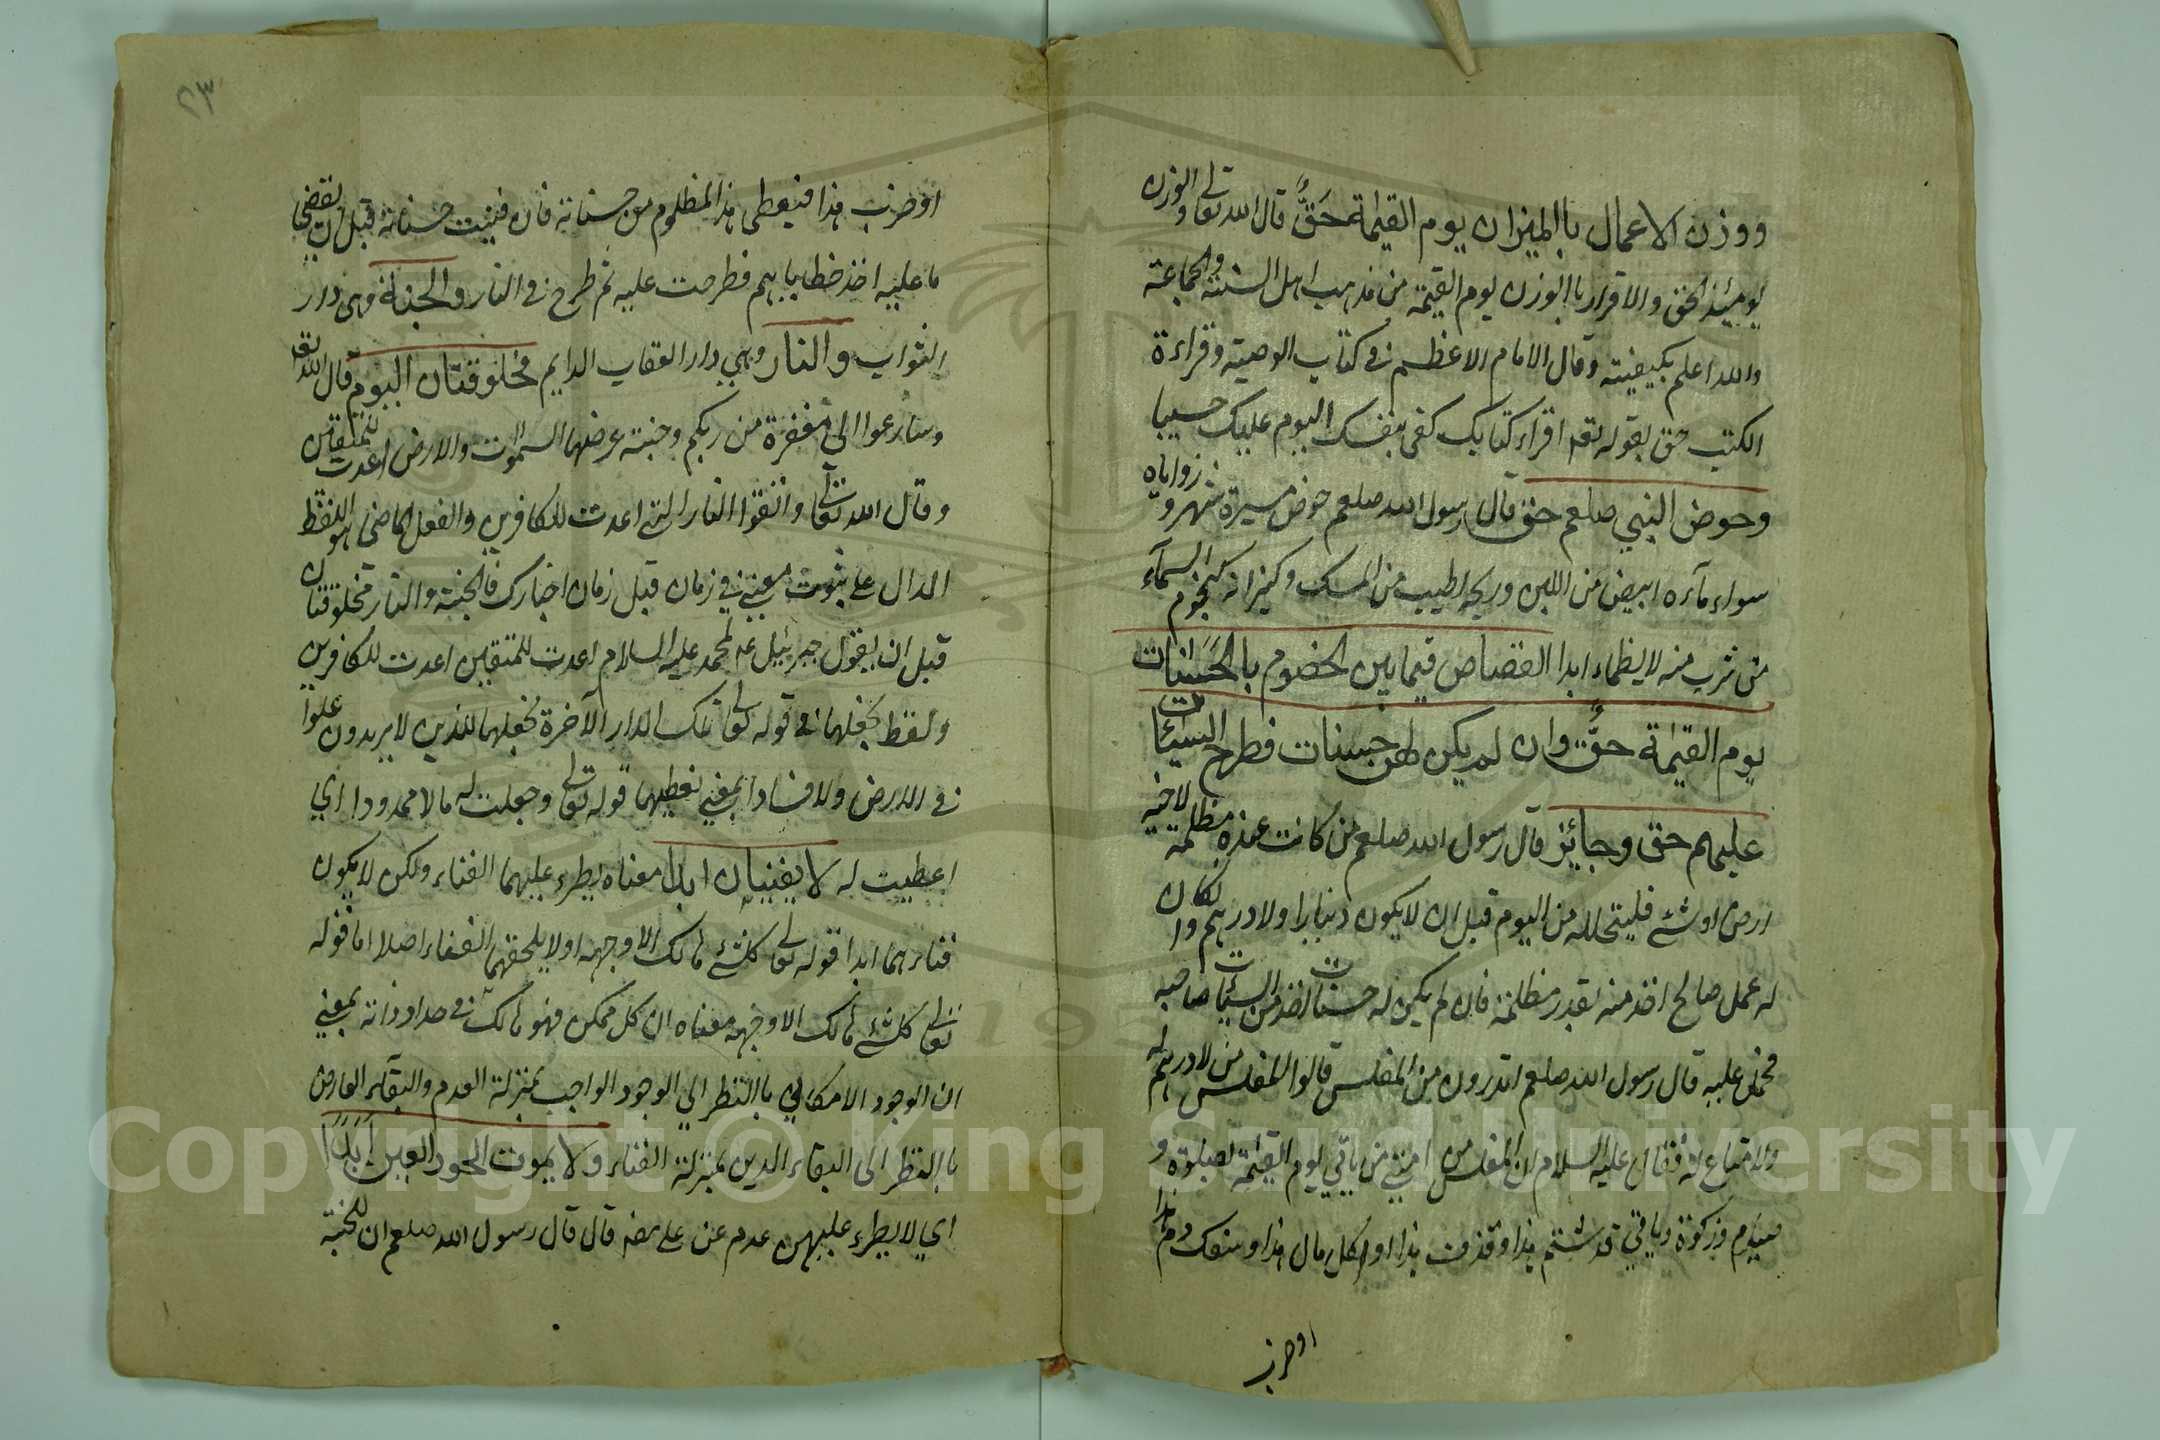 ووزن الاعمال باالميزان يوم القيمة حَقٌّ قال الله تعالى والوزن
يومئذ الحق والاقرار باالوزن يوم القيمة من مذهب اهل السنة والجماعة
والله اعلم بكيفيته وقال الامام الاعظم في كتاب الوصية وقراءة
الكتب حق بقوله تعه اقراء كتابك كفى بنفسك اليوم عليك حسيبا
وحوض النبي صلعم حق قال رسول الله صلعم حوض مسيرة شهر و زواياه
سواء ماءه ابيض من اللبن وريحه اطيب من المسك وكيزانه كنجوم السماء
من شرب منه لايظماء ابدا القصاص فيما بين الخصوم باالحَسَنات
يوم القيمة حقٌّ وان لم يكن لهن حسنات فطرح السيئات
عليهم حق وجائز قال رسول الله صلعم من كانت عنده مظلمة لاخيه
ارض او شئ فليتحلله من اليوم قبل ان لا يكون دينارا ولا درهم وا لكان
له عمل صالح اخذ منه بقدر مظلمته فان لم يكن له حسنات اخذ من السيئات صاحبه
فحمل عليه قال رسول الله صلعم اتدرون من المفلس قالوا المفلس من لا درهم له
ولا متاع له فقال عليه السلام ان المفلس من امتي من ياتي يوم القيمة بصلوة و
صيام وزكوة وياتي قد شتم هذا وقذف هذا او اكل مال هذا وسفك دم هذا
اوضرب
٢٣
اوضرب هذا فيعطى هذا المظلوم من حسناته فان فنيت حسناته قبل ان يقضى
ما عليه اخذ خطاياهم فطرحت عليه ثم طرح في النار والجنة وهى دار
الثواب والنار وهي دار العقاب الدايم مخلوقتان اليوم قال الله تعه
وسارعوا الى مغفرة من ربكم وجنة عرضها السموات والارض اعدت للمتقين
وقال الله تعالى واتقوا النار التي اعدت للكافرين والفعل الماضى هو اللفظ
الدال على ثبوت معنى في زمان قبل زمان اخبارك فالجنة والنار مخلوقتان
قبل ان يقول جبرئيل عم لمحمد عليه السلام اعدت للمتقين اعدت للكافرين
ولفظ نجعلها في قوله تعالى تلك الدار الآخرة نجعلها للذين لا يريدون علوا
في الارض ولا فسادا بمعنى نعطيها قوله تعالى وجعلت له مالا ممدودا اي
اعطيت له لا يفنيان ابدا معناه يطرء عليهما الفناء ولكن لا يكون
فناءهما ابدا قوله تعالى كل شئ هالك الا وجهه اولا يلحقهما الفناء اصلا اما قوله
تعالى كل شئ هالك الا وجهه معناه ان كل ممكن فهو هالك في حد او ذاته بمعنى
ان الوجود الامكاني باالنظر الي الوجود الواجب بمنزلة العدم والبقاء العارض
باالنظر الى البقاء الدين بمنزلة الفناء ولا يموت الحور العين اَبَدًا
اي لا يطرء عليهن عدم عن علي رضه قال قال رسول الله صلعم ان للجنة
Copyright © King Saud University